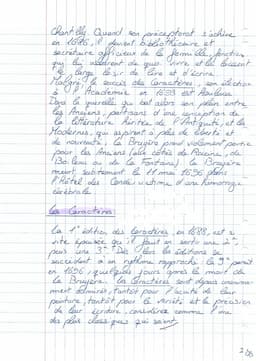 Chantilly. Quand son préceptorat s'achève
en 1686, il devient bibliothécaire et
secrétaire officieux de la famille, fonction
qui lui valurent de quoi vivre, et lui laissent
le large loisir de lire et d'écrire.
Malgré le succès des Caractères, son élection
à l'Académie en 1693 est houleuse.
Dans la querelle qui bat alors son plein entre
les Anciens, partisans d'une conception de
la littérature héritée de l'Antiquité, et les
Modernes, qui aspirent à plus de liberté et
de nouveauté, La Bruyère prend violemment partie
pour les Anciens (aux côtés de Racine, de
Boileau ou de La Fontaine). La Bruyère
meurt subitement le 11 mai 1696 dans
l'Hôtel des Condé victime d'une hémorragie
cérébrale.
Les Caractères
La 1° édition des Caractères, en 1688, est si
vite épuisée qu'il faut en sortir une 2°,
puis une 3°. Dès lors les éditions se
succèdent à un rythme rapproché : la 9° paraît
en 1696, quelques jours après la mort de
La Bruyère. Les Caractères sont depuis
admirés, tantôt pour l'acuité de leur
peinture, tantôt pour la vérité et la précision
de leur écriture, considérée comme l'une
des plus classiques qui soient.